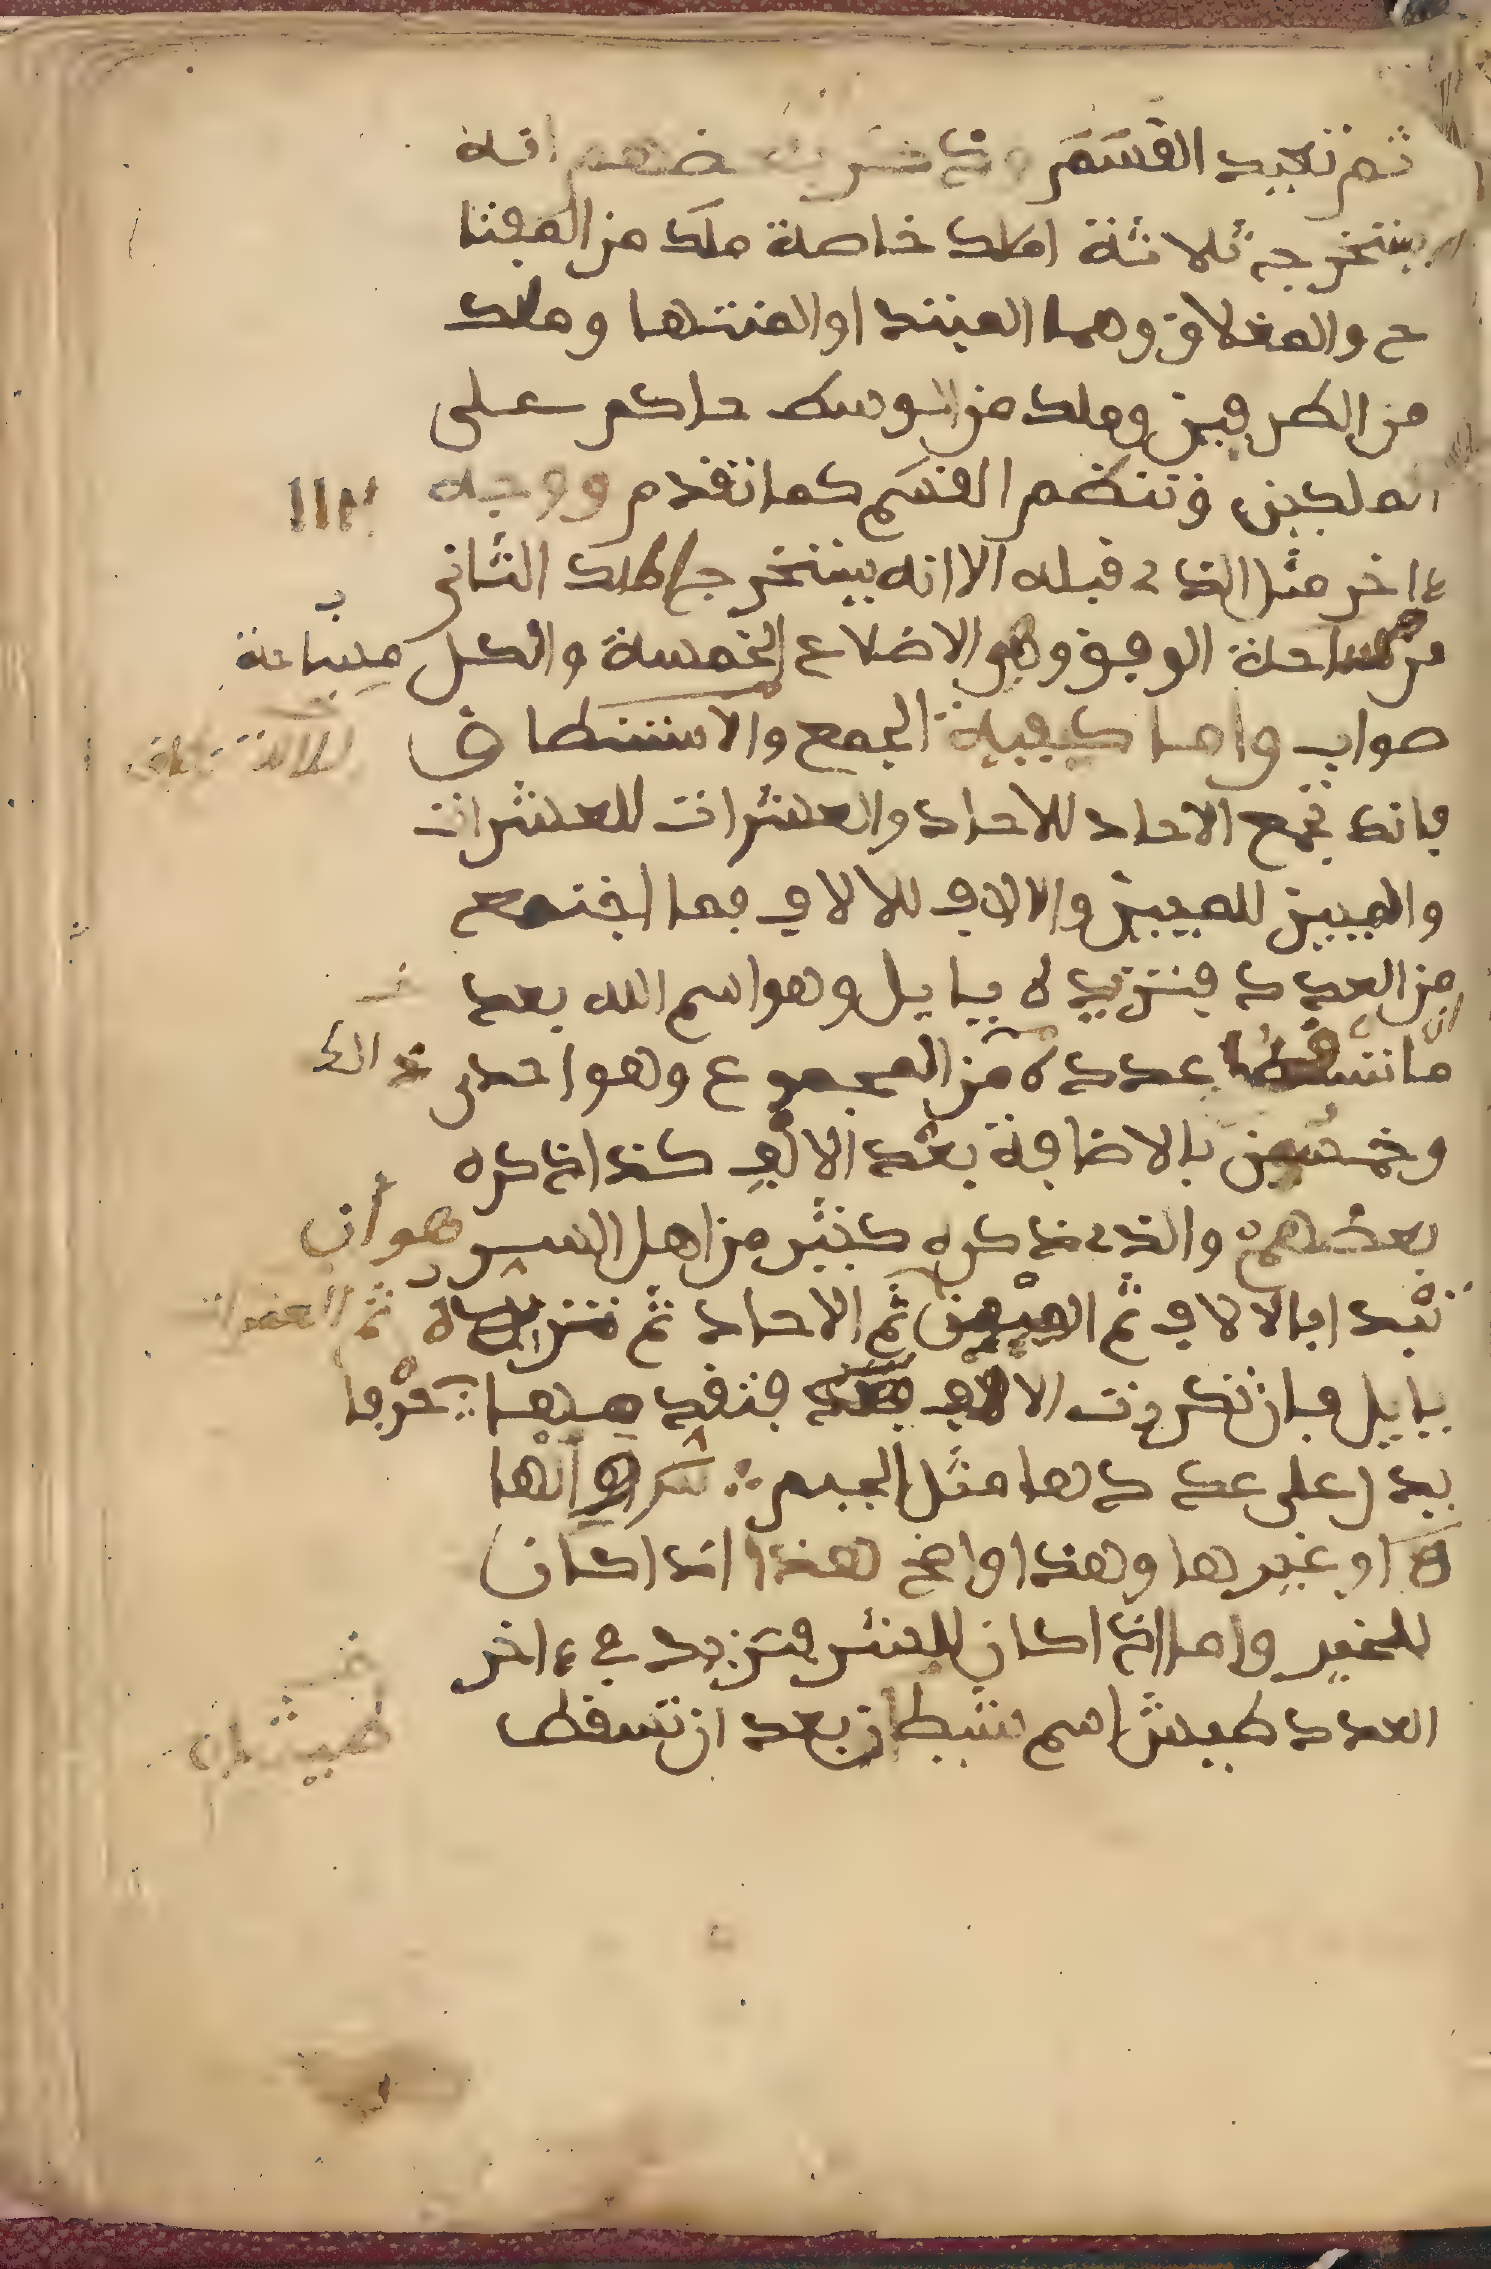 ثم تعيد القسم وذكر بعضهم انه
يستخرج ثلاثة املاك خاصة ملك من المفتا
ح والمغلاق وهما المبتدا والمنتها وملك
من الطرفين وملك من الوسط حاكم على
الملكين وتنظم القسم كما تقدم ووجه
ءاخر مثل الذي قبله الا انه يستخرج الملك الثاني
من مساحة الوفق وهو الاضلاع الخمسة والكل مساحة
صواب واما كيفية الجمع والاستنطاق
فانك تجمع الاحاد للاحاد والعشرات للعشرات
والميين للميين والالاف للالاف فما اجتمع
من العدد فتزيده ياييل وهو اسم الله بعد
ان ما تسقط عدده من المجموع وهو احدى
وخمسين بالاضافة بعد الالف كذا ذكره
بعضهم والذي ذكره كثير من اهل السر هو ان
تبدا بالالاف ثم الميين ثم الاحاد ثم تزيده ثم العشرات
ياييل فان تكررت الالاف فتقدمها حرفا
يدل على عددها مثل الجيم
ه او غيرها وهذا واضح هذا اذا كان
للخير واما اذا كان للشر فتزيد في ءاخر
العدد طيش اسم شيطان بعد ان تسقط
طيشان